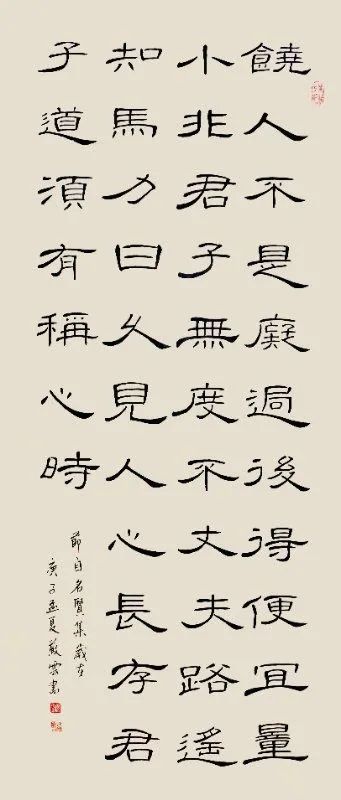 饒人不是癡過後得便宜量
小非君子無度不丈夫路遙
知馬力日久見人心長存君
子道須有稱心時
節自名賢集歲在
庚子孟夏雲書